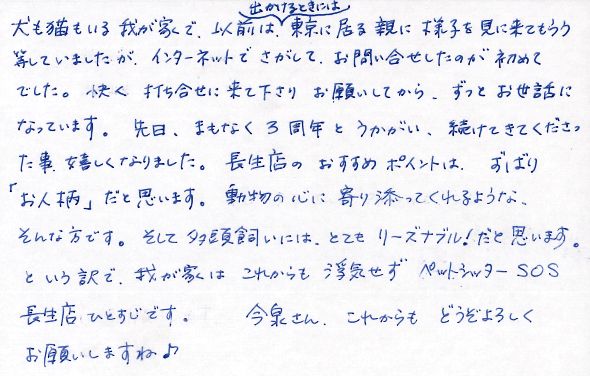 出かけるときには
犬も猫もいる我が家で、以前は、東京に居る親に様子を見に来てもらう
等していましたが、インターネットでさがして、お問い合せしたのが初めて
でした。快く打ち合せに来て下さり お願いしてから、ずっとお世話に
なっています。先日、まもなく3周年とうかがい、続けてきてくださっ
た事、嬉しくなりました。長生店のおすすめポイントは、ずばり
「お人柄」だと思います。動物の心に寄り添ってくれるような、
そんな方です。そして多頭飼いには、とてもリーズナブル!だと思います。
という訳で、我が家はこれからも浮気せずペットシッターSOS
長生店ひとすじです。今泉さん、これからもどうぞよろしく
お願いしますね♪